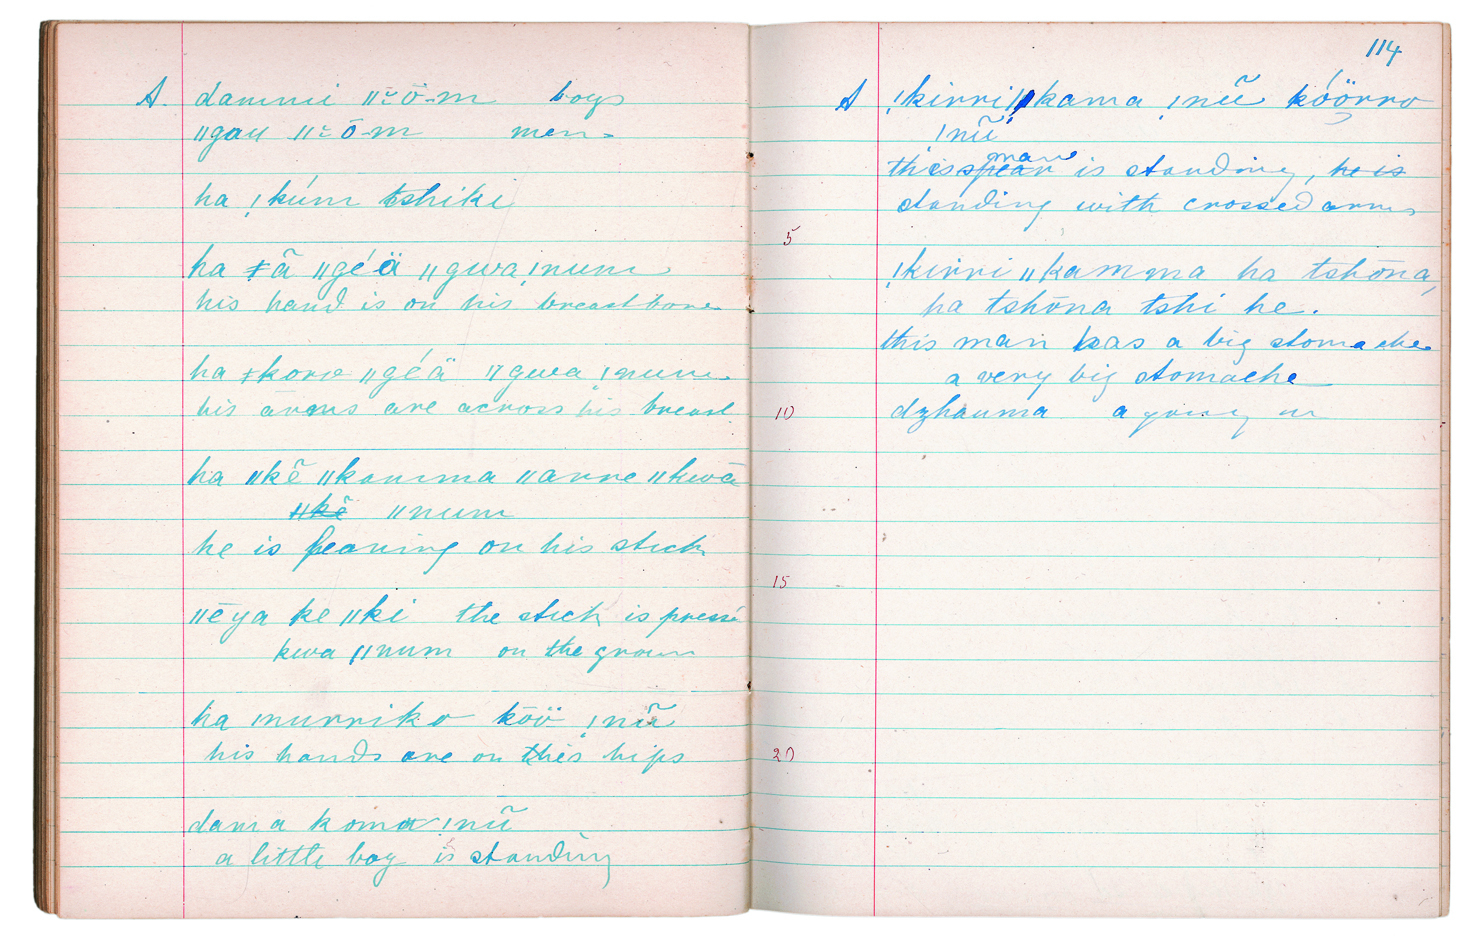 A. dammi ǁ ̆ō-m boys
ǁgau ǁ ̆ō-m men -
ha ǃkúm tshiki
ha ǂā̃ ǁgéä ǁgwa ǃnum
his hand is on his breastbone
ha ǂkoro ǁgéä ǁgwa ǃnum
his arms are across his breast
ha ǁkẽ ǁkamma ǁarre ǁkwā
ǁkẽ ǁnum
he is leaning on his stick
ǁēya ke ǁki the stick is presse
kwa ǁnum on the groun
ha ǃnurriko kōö ǃnũ
his hands are on his hips
dama koma ǃnũ
a little boy is standing
114
A ǃkirri ǁkama ǃnũ kóörro
ǃnũ
man
this spear is standing, he is
standing with crossed arms
5
ǃkirri ǁkamma ha tshōna,
ha tshōna tshi he.
this man has a big stomache
a very big stomache
10
dzhauma a young
15
20